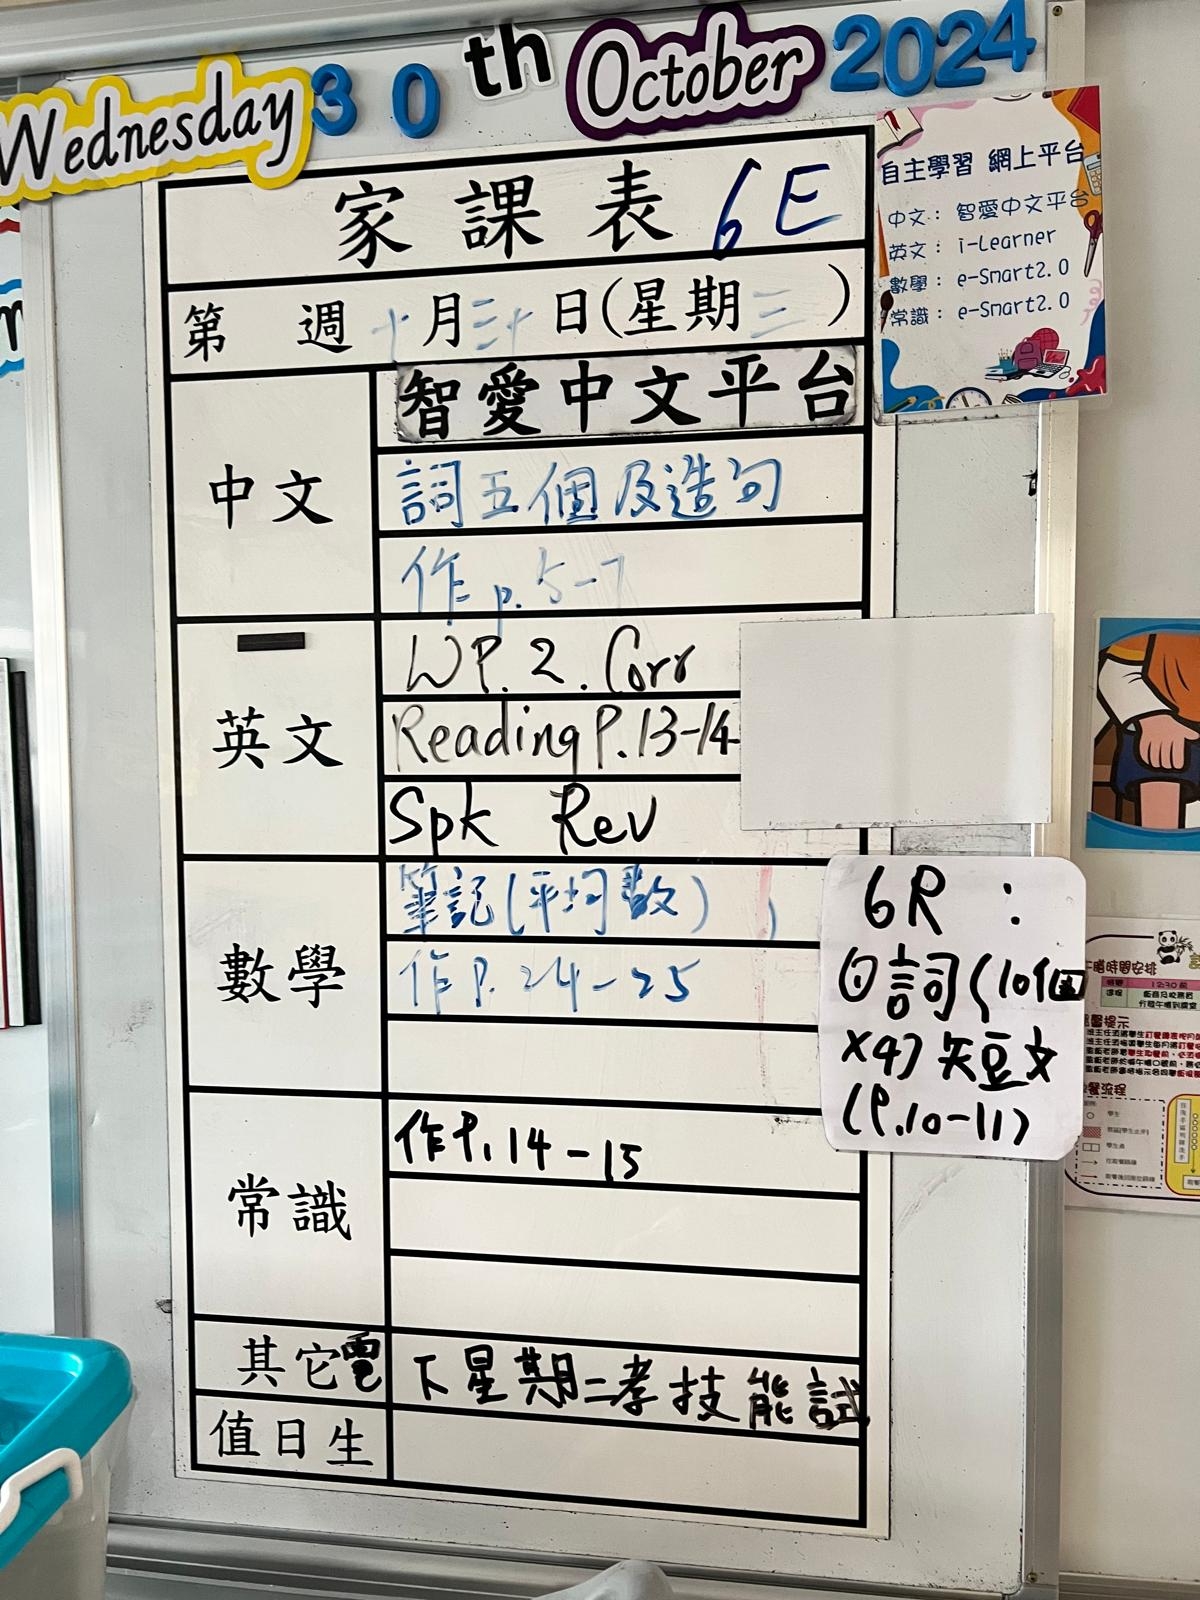 Wednesday 30th October 2024
家課表 6E
第 週 十月三十日(星期三)
中文
智愛中文平台
詞五個及造句
作 p.5-7
英文
WP.2.Corr
Reading P.13-14
Spk Rev
數學
筆記(平均數)
作P.24-25
常識
作P.14-15
其它電
下星期二考技能試
值日生
自主學習 網上平台
中文：智愛中文平台
英文：i-Learner
數學：e-Smart2.0
常識：e-Smart2.0
6R：
詞(10個
x4)
短文
(P.10-11)
午膳時間安排
12:30